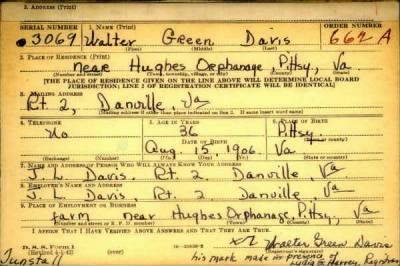 2. ADDRESS (Print)
SERIAL NUMBER 1. NAME (Print) ORDER NUMBER
3069 Walter Green Davis 662 A
(First) (Middle) (Last)
2. PLACE OF RESIDENCE (Print)
near Hughes Orphanage, Pittsy, Va
(Number and street) (Town, township, village, or city) (County) (State)
[THE PLACE OF RESIDENCE GIVEN ON THE LINE ABOVE WILL DETERMINE LOCAL BOARD
JURISDICTION; LINE 2 OF REGISTRATION CERTIFICATE WILL BE IDENTICAL]
3. MAILING ADDRESS
Rt. 2, Danville, Va
(Mailing address if other than place indicated on line 2. If same insert word same)
4. TELEPHONE 5. AGE IN YEARS 6. PLACE OF BIRTH
No 36 Pittsy
DATE OF BIRTH (Town or county)
Aug. 15, 1906 Va
(Exchange) (Number) (Mo.) (Day) (Yr.) (State or country)
7. NAME AND ADDRESS OF PERSON WHO WILL ALWAYS KNOW YOUR ADDRESS
J. L. Davis Rt. 2 Danville, Va
8. EMPLOYER'S NAME AND ADDRESS
J. L. Davis Rt. 2 Danville, Va
9. PLACE OF EMPLOYMENT OR BUSINESS
farm near Hughes Orphanage, Pittsy, Va
(Number and street or R. F. D. number) (Town) (County) (State)
I AFFIRM THAT I HAVE VERIFIED ABOVE ANSWERS AND THAT THEY ARE TRUE.
D. S. S. Form 1
(Revised 4-1-42) (over)
Walter Green Davis
Tunstall his mark made in presence of